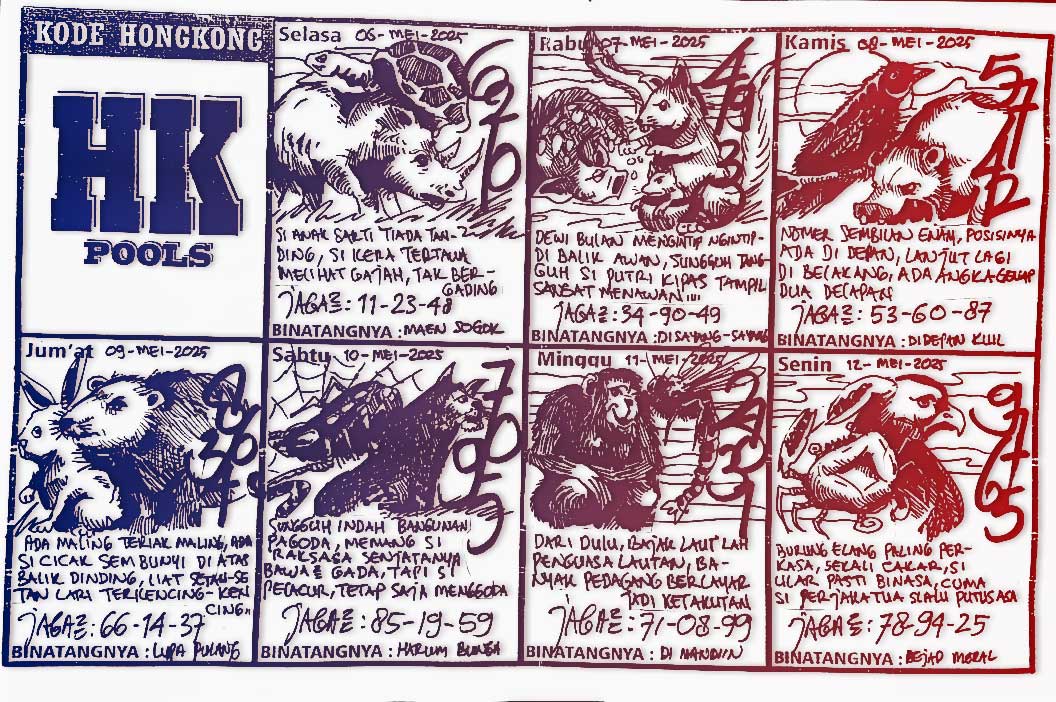 KODE HONGKONG
HK
POOLS
Selasa 06-MEI-2025
6
2
1
0
SI ANAK SAKTI TIADA TAN-
DING, SI KERA TERTAWA
MELIHAT GAJAH, TAK BER-
GADING
JAGA2: 11-23-48
BINATANGNYA : MAEN SOGOK
Rabu 07-MEI-2025
4
9
3
DEWI BULAN MENGINTIP NGINTIP-
DI BALIK AWAN, SUNGGUH TANG-
GUH SI PUTRI KIPAS TAMPIL
SANGAT MENAWAN!!!
JAGA2: 34-90-49
BINATANGNYA : DISAYANG-SAYANG
Kamis 08-MEI-2025
5
7
4
2
NOMER SEMBILAN ENAM, POSISINYA
ADA DI DEPAN, LANJUT LAGI
DI BELAKANG, ADA ANGKA GELAP
DUA DELAPAN
JAGA2: 53-60-87
BINATANGNYA : DIDEPAN KUIL
Jum'at 09-MEI-2025
ADA MALING TERIAK MALING, ADA
SI CICAK SEMBUNYI DI ATAP
BALIK DINDING, LIAT SETAN-SE
TAN LARI TERKENCING-KEN
CING..
JAGA2: 66-14-37
BINATANGNYA : LUPA PULANG
Sabtu 10-MEI-2025
7
0
9
5
SUNGGUH INDAH BANGUNAN
PAGODA, MEMANG SI
RAKSASA SENJATANYA
BAWA2 GADA, TAPI SI
PELACUR, TETAP SAJA MENGGODA
JAGA2: 85-19-59
BINATANGNYA : HARUM BUNGA
Minggu 11-MEI-2025
DARI DULU, BAJAK LAUT LAH
PENGUASA LAUTAN, BA-
NYAK PEDAGANG BERLAYAR
JADI KETAKUTAN
JAGA2: 71-08-99
BINATANGNYA : DI
Senin 12-MEI-2025
9
7
6
5
BURUNG ELANG PALING PER-
KASA, SEKALI CAKAR, SI
ULAR PASTI BINASA, CUMA
SI PERJAKA TUA SLALU PUTUS ASA
JAGA2: 78-94-25
BINATANGNYA : BEJAD MORAL